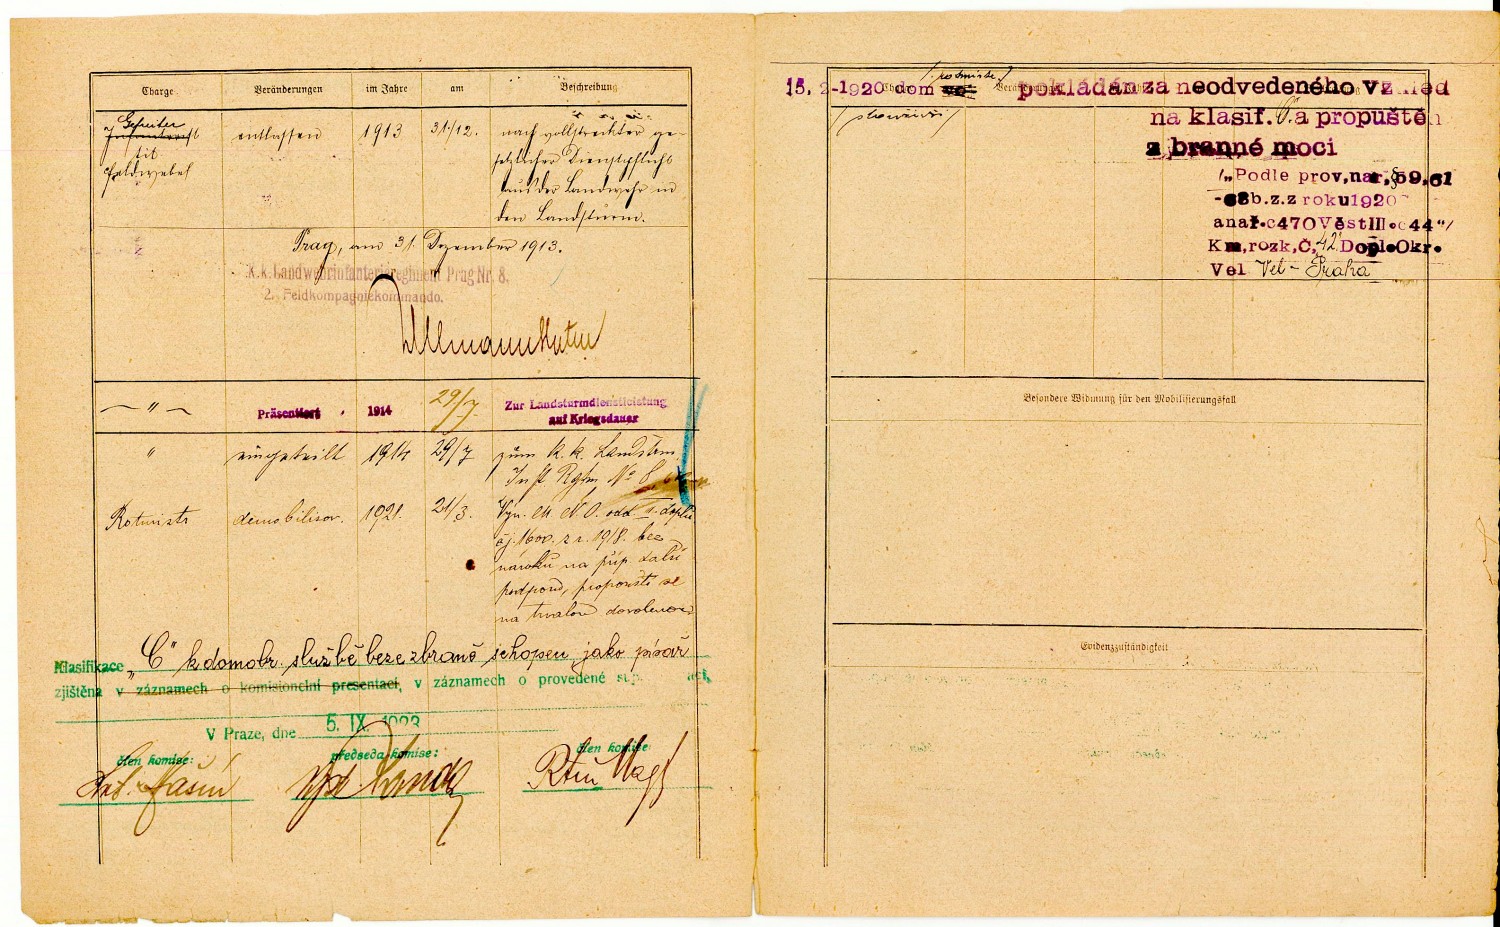 Charge Veränderungen im Jahre am Beschreibung
Gefreiter
Infanterist entlassen 1913 31./12. nach vollstreckter ge-
tit setzlicher Dienstpflicht
Feldwebel aus der Landwehr in
den Landsturm.
Prag, am 31. Dezember 1913.
K.k. Landwehrinfanterieregiment Prag Nr. 8.
2. Feldkompagniekommando.
— " — Präsentiert 1914 29/7. Zur Landsturmdienstleistung
auf Kriegsdauer
" eingeteilt 1914 29/7 zum k. k. Landstrm
Inft Rgtm No 8
Rotmistr demobilisov. 1921. 21/3. Výn. M. N. O. odd. I. dopln.
čj. 1600. z r. 1918. bez
nároku na příp. další
podpor, propouští se
na trvalou dovolenou
Klasifikace „C" k domobr. službě beze zbraně schopen, jako písař
zjištěna v záznamech o komisionelní presentaci, v záznamech o provedené
V Praze, dne 5. IX. 1923
člen komise: předseda komise: člen komise
15, 2-1920 dom pokládán za neodvedeného vzhled
na klasif. C. a propuštěn
z branné moci
/„Podle prov, nar, § 59, 61
-63 b.z.z roku 1920
a nař. c 470 Věst III. c 44"/
Km, rozk, Č, 42 Dopl. Okr.
Vel Vel - Praha
Charge Veränderungen
Besondere Widmung für den Mobilisierungsfall
Evidenzzuständigkeit